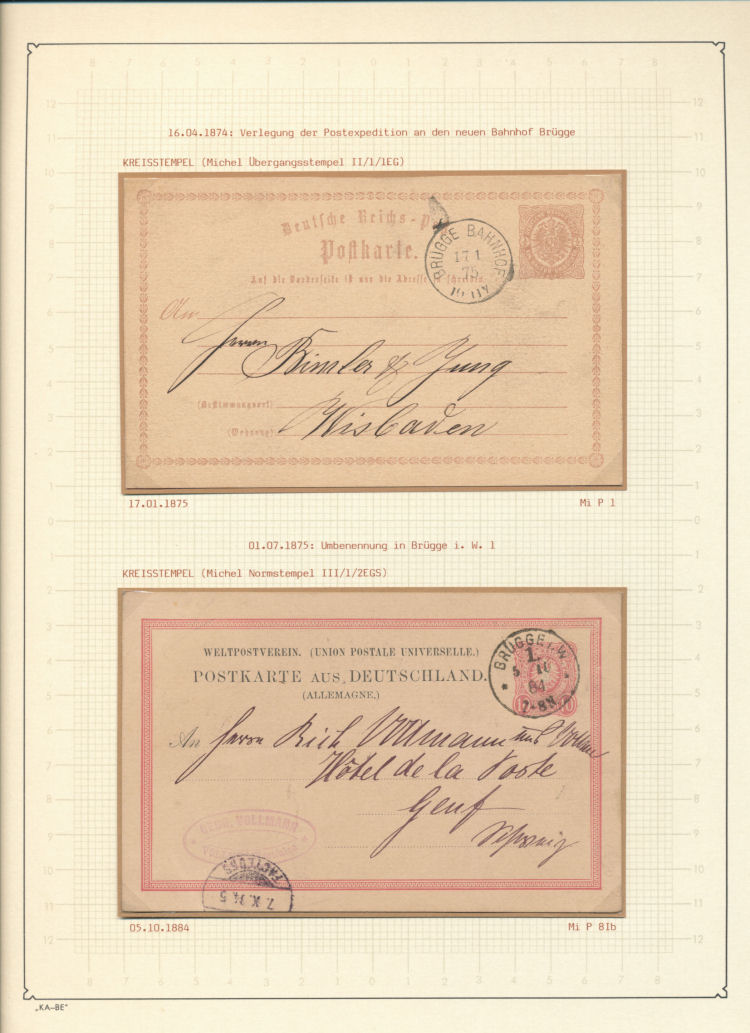 16.04.1874: Verlegung der Postexpedition an den neuen Bahnhof Brügge
KREISSTEMPEL (Michel Übergangsstempel II/1/1EG)
Deutsche Reichs-p
Postkarte.
Auf die Vorderseite ist nur die Adresse zu schreiben.
BRÜGGE BAHNHOF
17 1
75
An
Herrn Bimler & Jung
(Bestimmungsort)
Wisbaden
(Wohnung)
17.01.1875
Mi P 1
01.07.1875: Umbenennung in Brügge i. W. 1
KREISSTEMPEL (Michel Normstempel III/1/2EGS)
WELTPOSTVEREIN. (UNION POSTALE UNIVERSELLE.)
POSTKARTE AUS DEUTSCHLAND.
(ALLEMAGNE.)
BRÜGGE I. W.
1.
5 10
84
7-8N.
10
An Herrn Rich Vollmann und
Hôtel de la Poste
Genf
Schweiz
GEBR. VOLLMANN
FACTEURS
7. X. 84. 5
05.10.1884
Mi P 8Ib
„KA–BE"
8 7 6 5 4 3 2 1 0 1 2 3 4 5 6 7 8
12 11 10 9 8 7 6 5 4 3 2 1 0 1 2 3 4 5 6 7 8 9 10 11 12